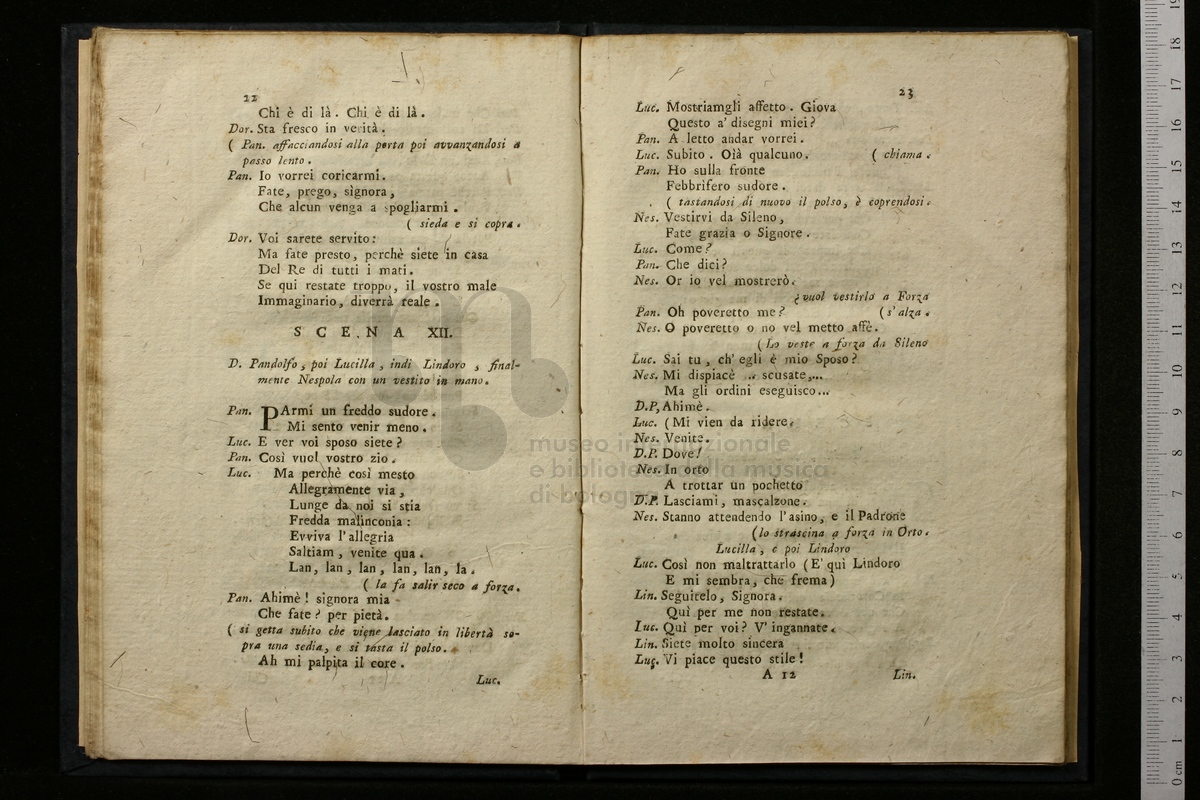 22
Chi è di là. Chi è di là.
Dor. Sta fresco in verità.
( Pan. affacciandosi alla porta poi avvanzandosi a
passo lento.
Pan. Io vorrei coricarmi.
Fate, prego, signora,
Che alcun venga a spogliarmi.
( sieda e si copra.
Dor. Voi sarete servito:
Ma fate presto, perchè siete in casa
Del Re di tutti i mati.
Se qui restate troppo, il vostro male
Immaginario, diverrà reale.
SCENA XII.
D. Pandolfo, poi Lucilla, indi Lindoro, final-
mente Nespola con un vestito in mano.
Pan. PArmi un freddo sudore.
Mi sento venir meno.
Luc. E ver voi sposo siete?
Pan. Così vuol vostro zio.
Luc. Ma perchè così mesto
Allegramente via,
Lunge da noi si stia
Fredda malinconia:
Evviva l'allegria
Saltiam, venite qua.
Lan, lan, lan, lan, lan, la.
( la fa salir seco a forza.
Pan. Ahimè! signora mia
Che fate? per pietà.
( si getta subito che viene lasciato in libertà so-
pra una sedia, e si tasta il polso.
Ah mi palpita il core.
Luc.
23
Luc. Mostriamgli affetto. Giova
Questo a' disegni miei?
Pan. A letto andar vorrei.
Luc. Subito. Olà qualcuno. ( chiama.
Pan. Ho sulla fronte
Febbrifero sudore.
( tastandosi di nuovo il polso, è coprendosi.
Nes. Vestirvi da Sileno,
Fate grazia o Signore.
Luc. Come?
Pan. Che dici?
Nes. Or io vel mostrerò.
( vuol vestirlo a Forza
Pan. Oh poveretto me? ( s'alza.
Nes. O poveretto o no vel metto affè.
( Lo veste a forza da Sileno
Luc. Sai tu, ch'egli è mio Sposo?
Nes. Mi dispiacè .. scusate,...
Ma gli ordini eseguisco...
D.P, Ahimè.
Luc. ( Mi vien da ridere.
Nes. Venite.
D.P. Dove!
Nes. In orto
A trottar un pochetto
D.P. Lasciami, mascalzone.
Nes. Stanno attendendo l'asino, e il Padrone
(lo strascina a forza in Orto.
Lucilla, e poi Lindoro
Luc. Così non maltrattarlo (E' quì Lindoro
E mi sembra, che frema)
Lin. Seguitelo, Signora.
Quì per me non restate.
Luc. Quì per voi? V' ingannate.
Lin. Siete molto sincera
Luc. Vi piace questo stile!
A 12
Lin.
museo internazionale
e biblioteca della musica
di bologna